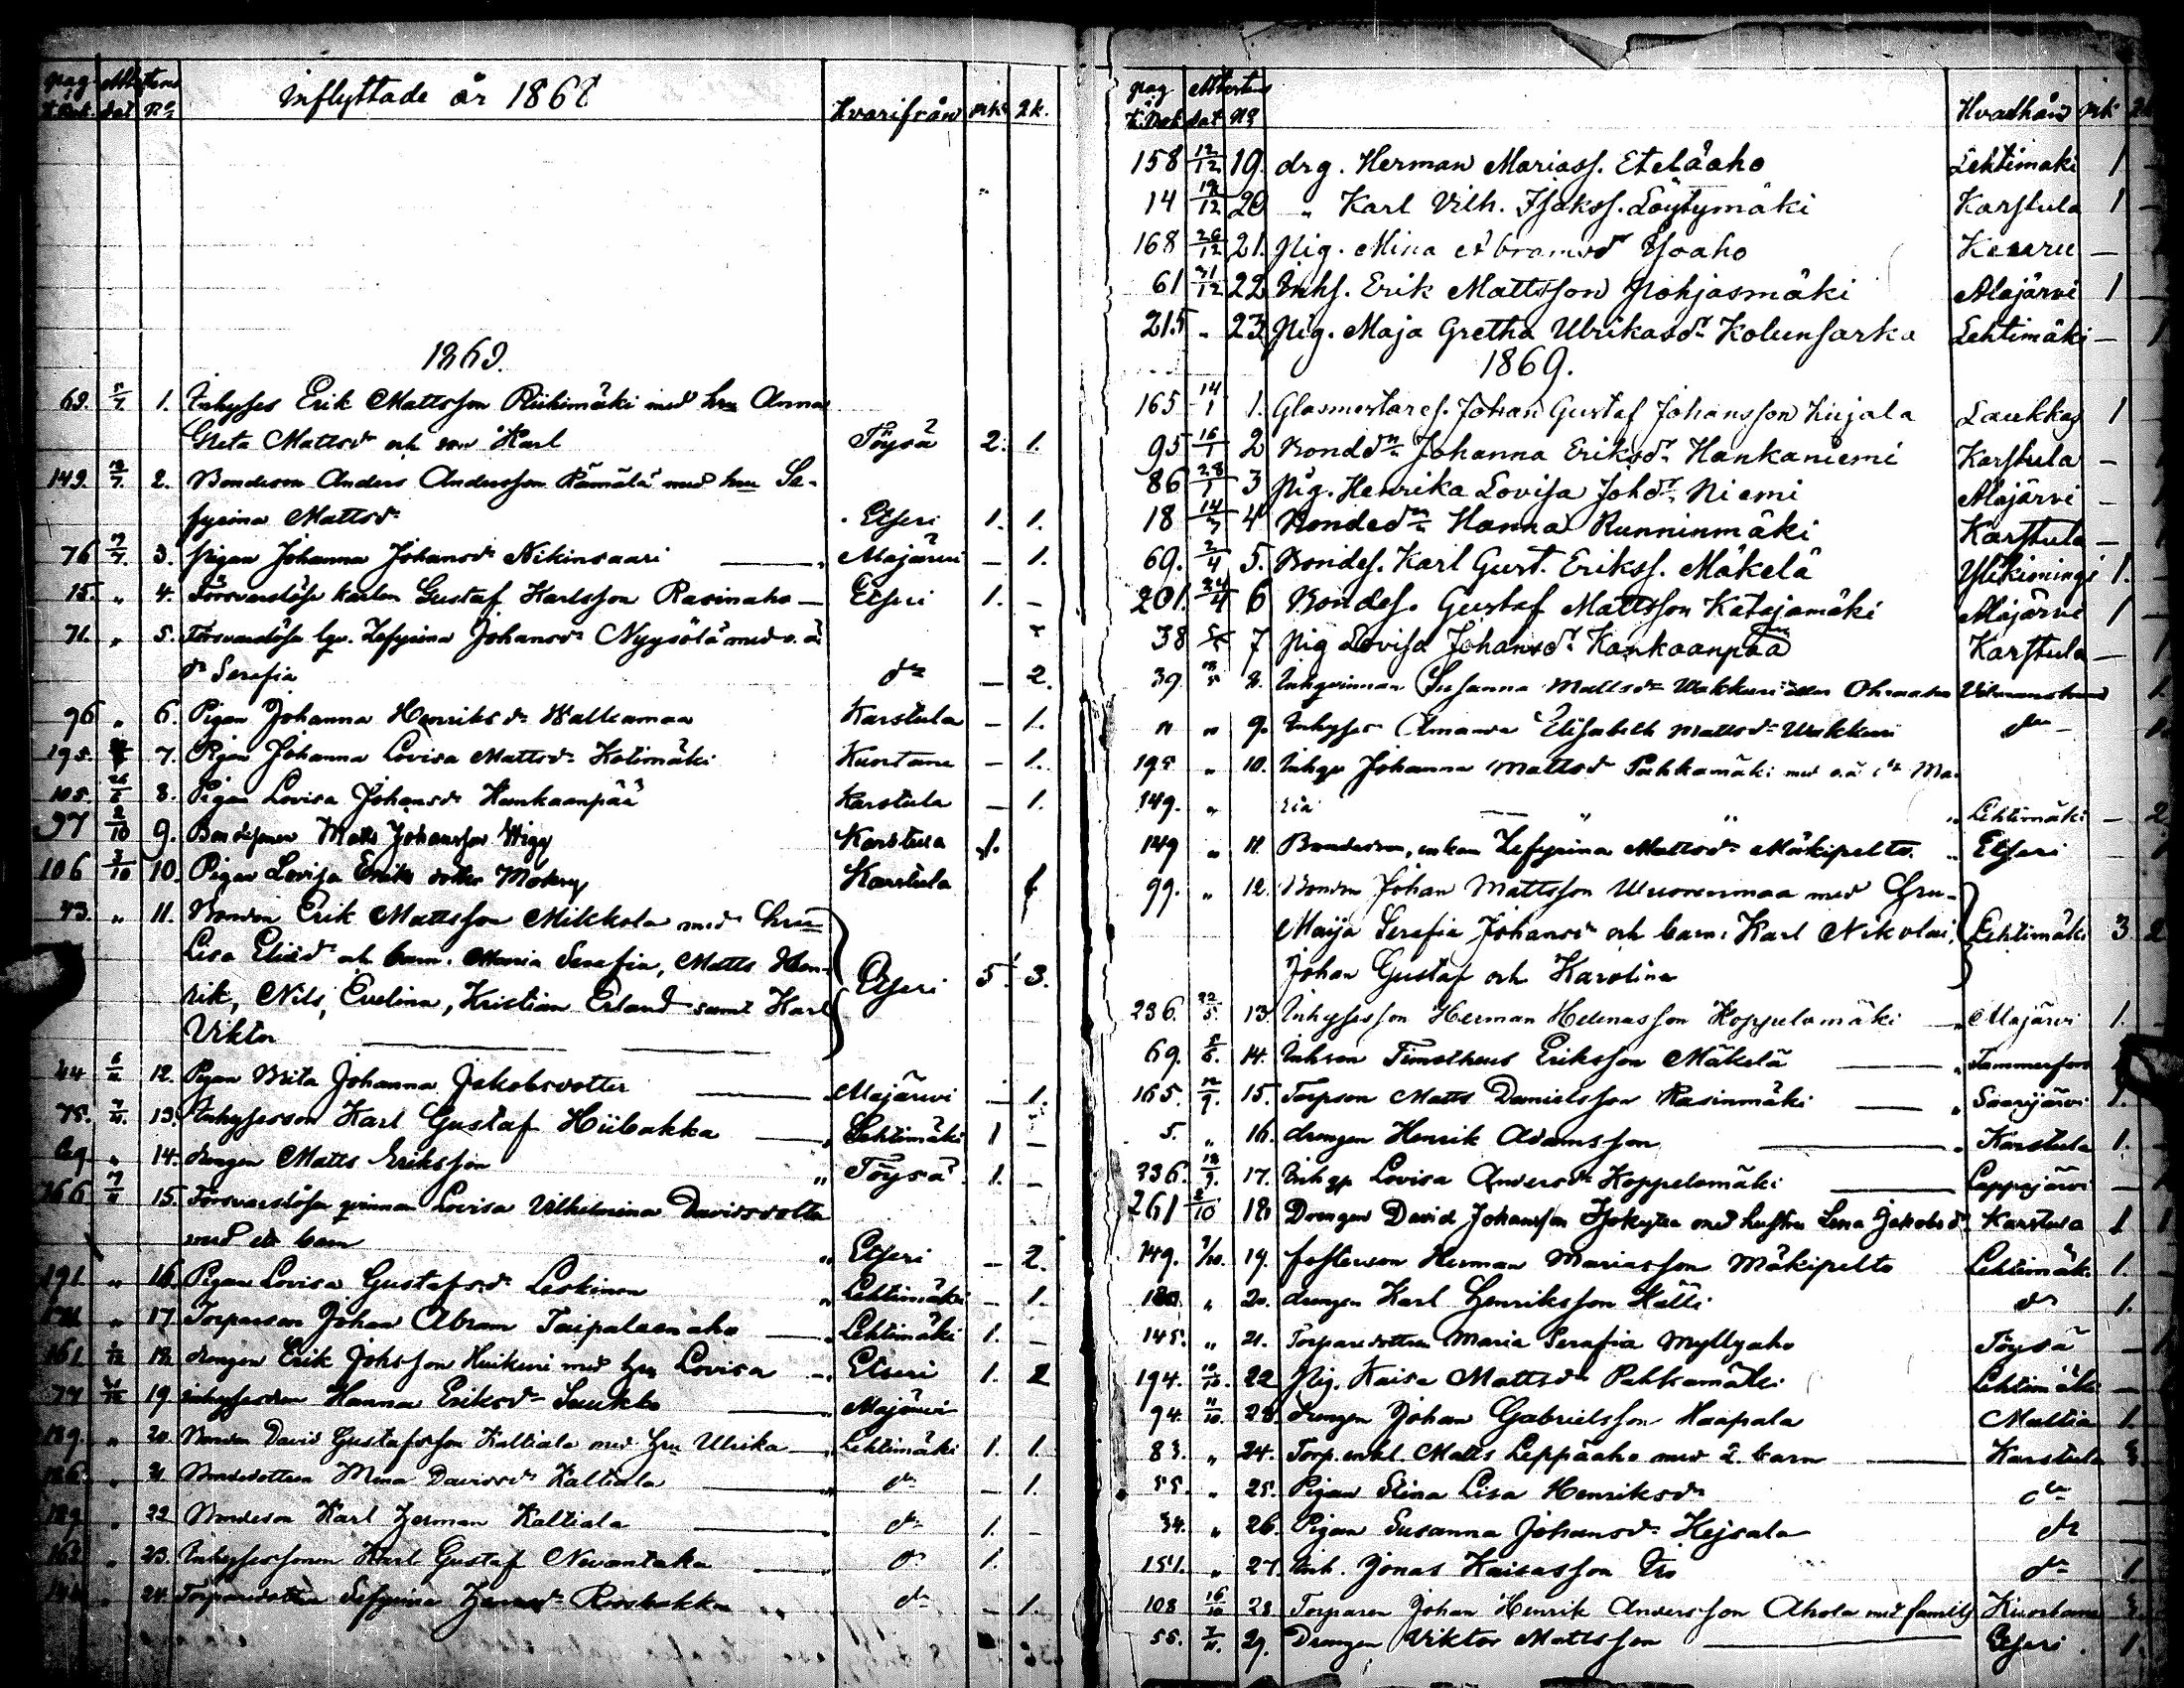 pag Attestens
i K.Bok. dat No Inflyttade år 1868 Hvarifrån mk. qk.
1869.
69. 1. Inhyses Erik Mattsson Riihimäki med hru Anna
Greta Mattsdr och son Karl Töysä 2. 1.
149. 2. Bondeson Anders Andersson Rämälä med hru Se-
fyrina Mattsdr Etseri 1. 1.
76 7/7. 3. Pigan Johanna Johansdr Nikinsaari Alajärvi — 1.
15. „ 4. Försvarslöse karlen Gustaf Karlsson Rasinaho — Etseri 1. —
71. „ 5. Försvarslösa qv. Zefyrina Johansdr Nygölä med o.ä.
dr Serafia do — 2.
96 „ 6. Pigan Johanna Henriksdr Walkamaa Karstula — 1.
195. 7. Pigan Johanna Lovisa Mattsdr Kotimäki Kuortane — 1.
105. 26/6 8. Pigan Lovisa Johansdr Kankaanpää Karstula — 1.
97 2/10 9. Bondesonen Matts Johansson Karstula 1.
106 3/10 10. Pigan Lovisa Eriks dotter Karstula 1
43. „ 11. Bonden Erik Mattsson Mikkola med hru
Lisa Eliasdr och barn: Maria Serafia, Matts Hen-
rik, Nils, Evelina, Kristian Erland samt Karl Etseri 5. 3.
Viktor
44 12. Pigan Brita Johanna Jakobsdotter Alajärvi — 1.
75. 13. Inhysesson Karl Gustaf Hiibakka Lehtimäki 1 —
69 „ 14. drengen Matts Eriksson „ Töysä 1. —
166 15. Försvarslösa qvinnan Lovisa Vilhelmina Davidsdotter
med ett barn „ Etseri — 2.
191 „ 16. Pigan Lovisa Gustafsdr Leskinen „ Lehtimäki — 1.
„ 17 Torparson Johan Abram Taipaleenaho Lehtimäki 1. —
161. 18. drengen Erik Johsson Huikuri med hru Lovisa Etseri 1. 2
77 19. Inhysesdren Hanna Eriksdr Saukko Alajärvi
189. „ 20. Bonden David Gustafsson Kaltiala med hru Ulrika Lehtimäki 1. 1.
„ 21. Bondedottren Mina Davidsdr Kaltiala do — 1.
189. „ 22. Bondeson Karl Herman Kaltiala do 1. —
„ 23. Inhysessonen Karl Gustaf Nevantaka do 1.
„ 24. Torparedottren Sefyrina do — 1.
pag Attestens
i K.Bok dat No Hvadhän mk
158 12/12 19. drg. Herman Mariass. Eteläaho Lehtimäki 1 —
14 19/12 20 „ Karl Vilh. Isakss. Löytymäki Karstula 1 —
168 26/12 21. Pig. Mina Abramsdr Ysoaho Keuru —
61 31/12 22 Inhs. Erik Mattsson Pohjasmäki Alajärvi 1 —
215 „ 23 Pig. Maja Gretha Ulrikasdr Kolunsarka Lehtimäki — 1
1869.
165 14/1 1. Glasmestares. Johan Gustaf Johansson Kujala Laukkas 1
95 16/1 2 Bonddn Johanna Eriksdr Hankaniemi Karstula —
86 28/1 3 Pig. Henrika Lovisa Johdr Niemi Alajärvi —
18 14/3 4 Bondedn Hanna Runninmäki Karstula —
69. 2/4 5. Bondes. Karl Gust. Erikss. Mäkelä Ylikiminge 1.
201. 24/4 6 Bondes. Gustaf Mattsson Katajamäki Alajärvi 1
38 7 Pig Lovisa Johansdr Kankaanpää Karstula — 1
39. 8. Inhqvinnan Susanna Mattsdr Wakkuri Vilmanstrand 1.
„ „ 9. Inhyses Amanda Elisabeth Mattsdr Wakkuri do —
195 „ 10. Inhqv Johanna Mattsdr Pahkamäki med o.ä. dr Ma-
149. „ ria „ „ Lehtimäki — 2
149 „ 11. Bondedren, enkan Zefyrina Mattsdr Mäkipelto „ Etseri
99. „ 12. Bonden Johan Mattsson Wuorenmaa med hru
Maija Serafia Johansdr och barn: Karl Nikolai, Lehtimäki 3 2
Johan Gustaf och Karolina
236. 22/5. 13. Inhysesson Herman Helenasson Koppelomäki Alajärvi 1.
69. 14. Inhson Timotheus Eriksson Mäkelä Tammerfors
165. 15. Torpson Matts Danielsson Rasinmäki „ Saarijärvi 1.
5. „ 16. drengen Henrik Adamsson Karstula 1.
236. 17. Inhqv Lovisa Andersdr Koppelomäki Lappajärvi —
261 2/10 18 Drengen David Johansson med hustru Lena Jakobsdr Karstula 1 1
149. 19. fosterson Herman Mariasson Mäkipelto Lehtimäki 1.
„ 20. drengen Karl Henriksson Kätti do 1.
145. „ 21. Torparedottren Maria Serafia Myllyaho Töysä —
194. 22 Pig. Kaisa Mattsdr Pahkamäki Lehtimäki —
94. 11/10. 23. Drengen Johan Gabrielsson Haapala Multia 1.
83. „ 24. Torp.enkl. Matts Leppäaho med 2. barn Karstula 3.
55. „ 25. Pigan Stina Lisa Henriksdr do —
34. „ 26. Pigan Susanna Johansdr Kejsala do —
151. „ 27. Inh. Jonas Kaisasson do 1.
108 16/10 28 Torparen Johan Henrik Andersson Ahola med familj Kuortane
55. 29. Drengen Viktor Mattsson Etseri. 1.